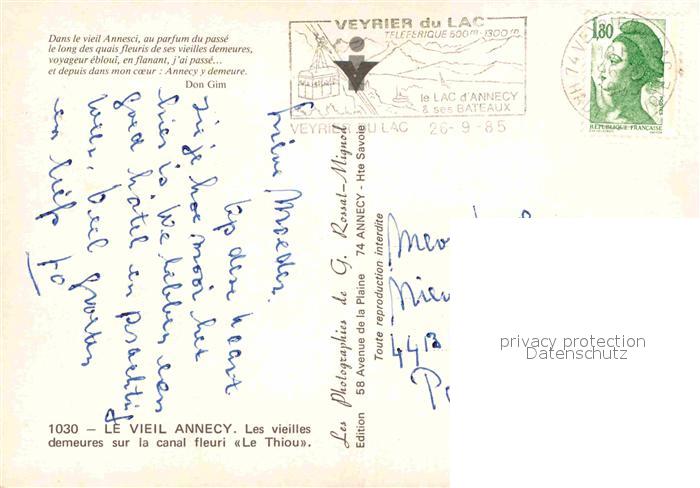 Dans le vieil Annesci, au parfum du passé
le long des quais fleuris de ses vieilles demeures,
voyageur ébloui, en flanant, j'ai passé...
et depuis dans mon cœur : Annecy y demeure.
Don Gim
VEYRIER du LAC
TELEFERIQUE 500m-1300m
le LAC d'ANNECY
& ses BATEAUX
VEYRIER DU LAC 26-9-85
74 VEYRIER
1,80
REPUBLIQUE FRANÇAISE
Lieve Moeder.
Op deze kaart
zie je hoe mooi het
hier is. We hebben een
goed hôtel en prachtig
weer. Veel groeten
en liefs
Les Photographies de G. Rossat-Mignon
Edition 58 Avenue de la Plaine 74 ANNECY - Hte Savoie
Toute reproduction interdite
privacy protection
Datenschutz
1030 - LE VIEIL ANNECY. Les vieilles
demeures sur la canal fleuri «Le Thiou».